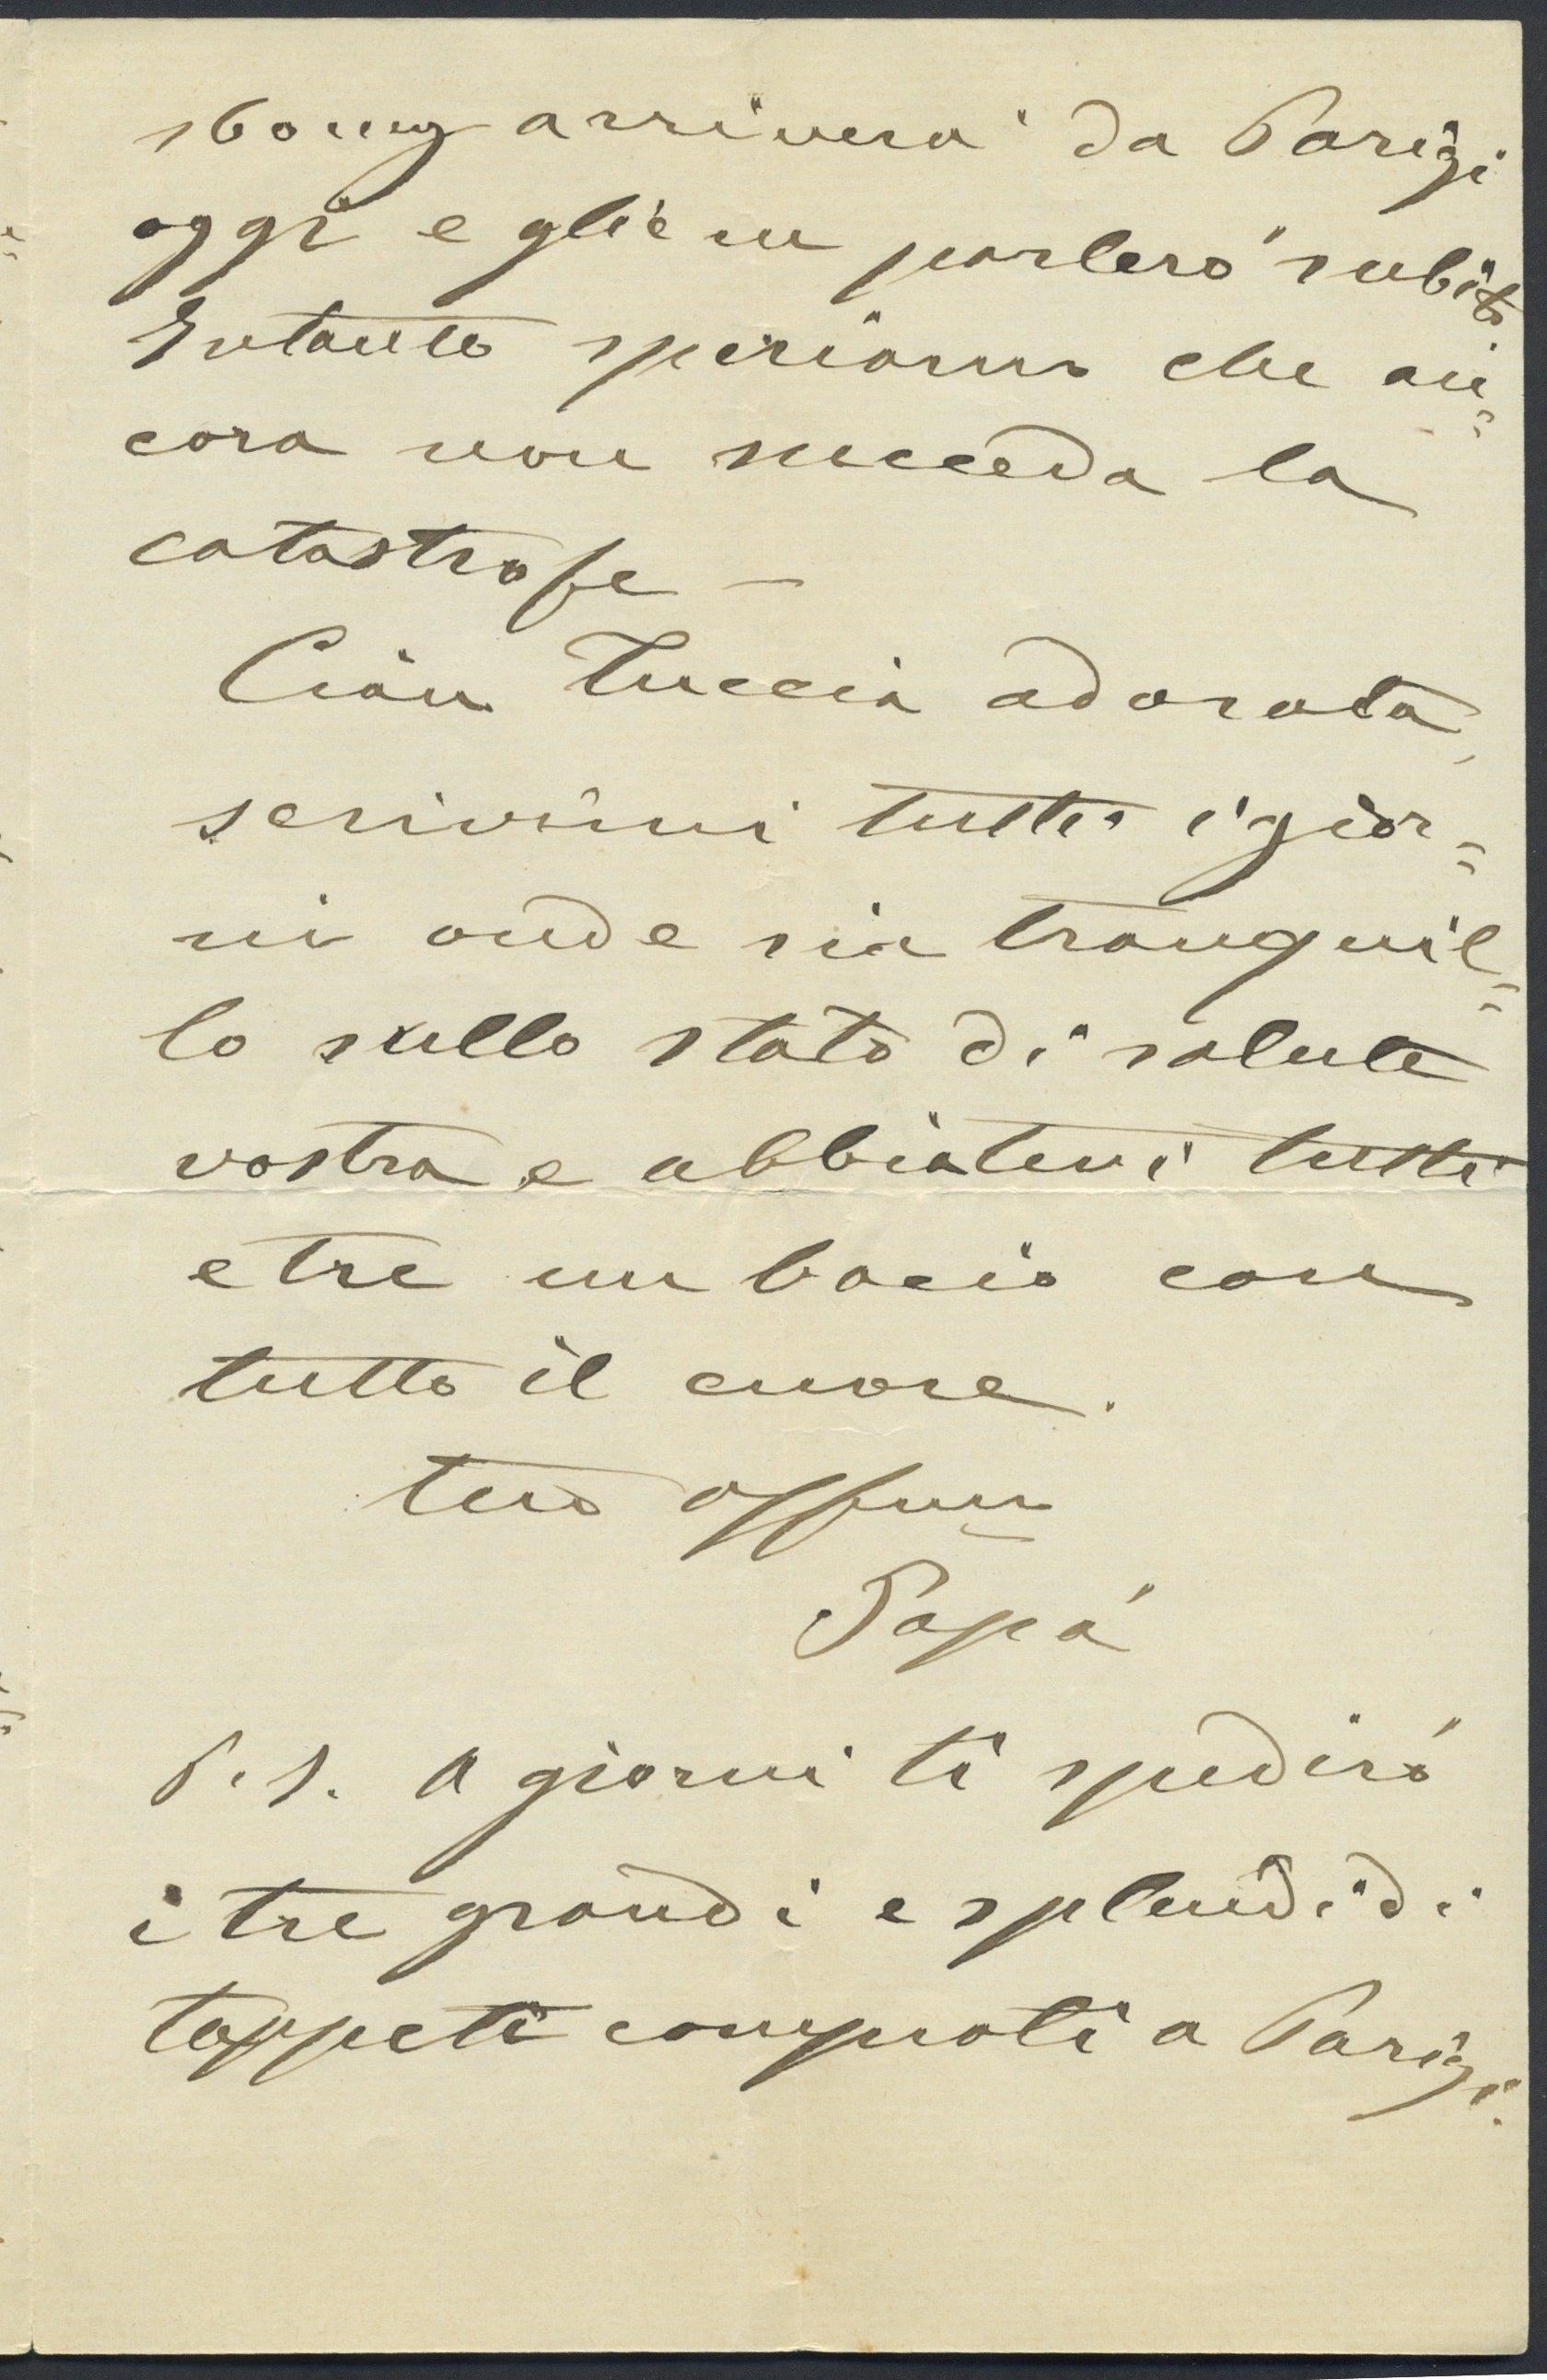 arriverà da Parigi
oggi e gliene parlerò subito
Intanto speriamo che an=
cora non succeda la
catastrofe –
Ciau Tuccia adorata,
scrivimi tutti i gior=
ni onde sia tranquil=
lo sullo stato di salute
vostra e abbiatevi tutti
e tre un bacio con
tutto il cuore.
tuo affmo
Papà
P.S. A giorni ti spedirò
i tre grandi e splendidi
tappeti comprati a Parigi.